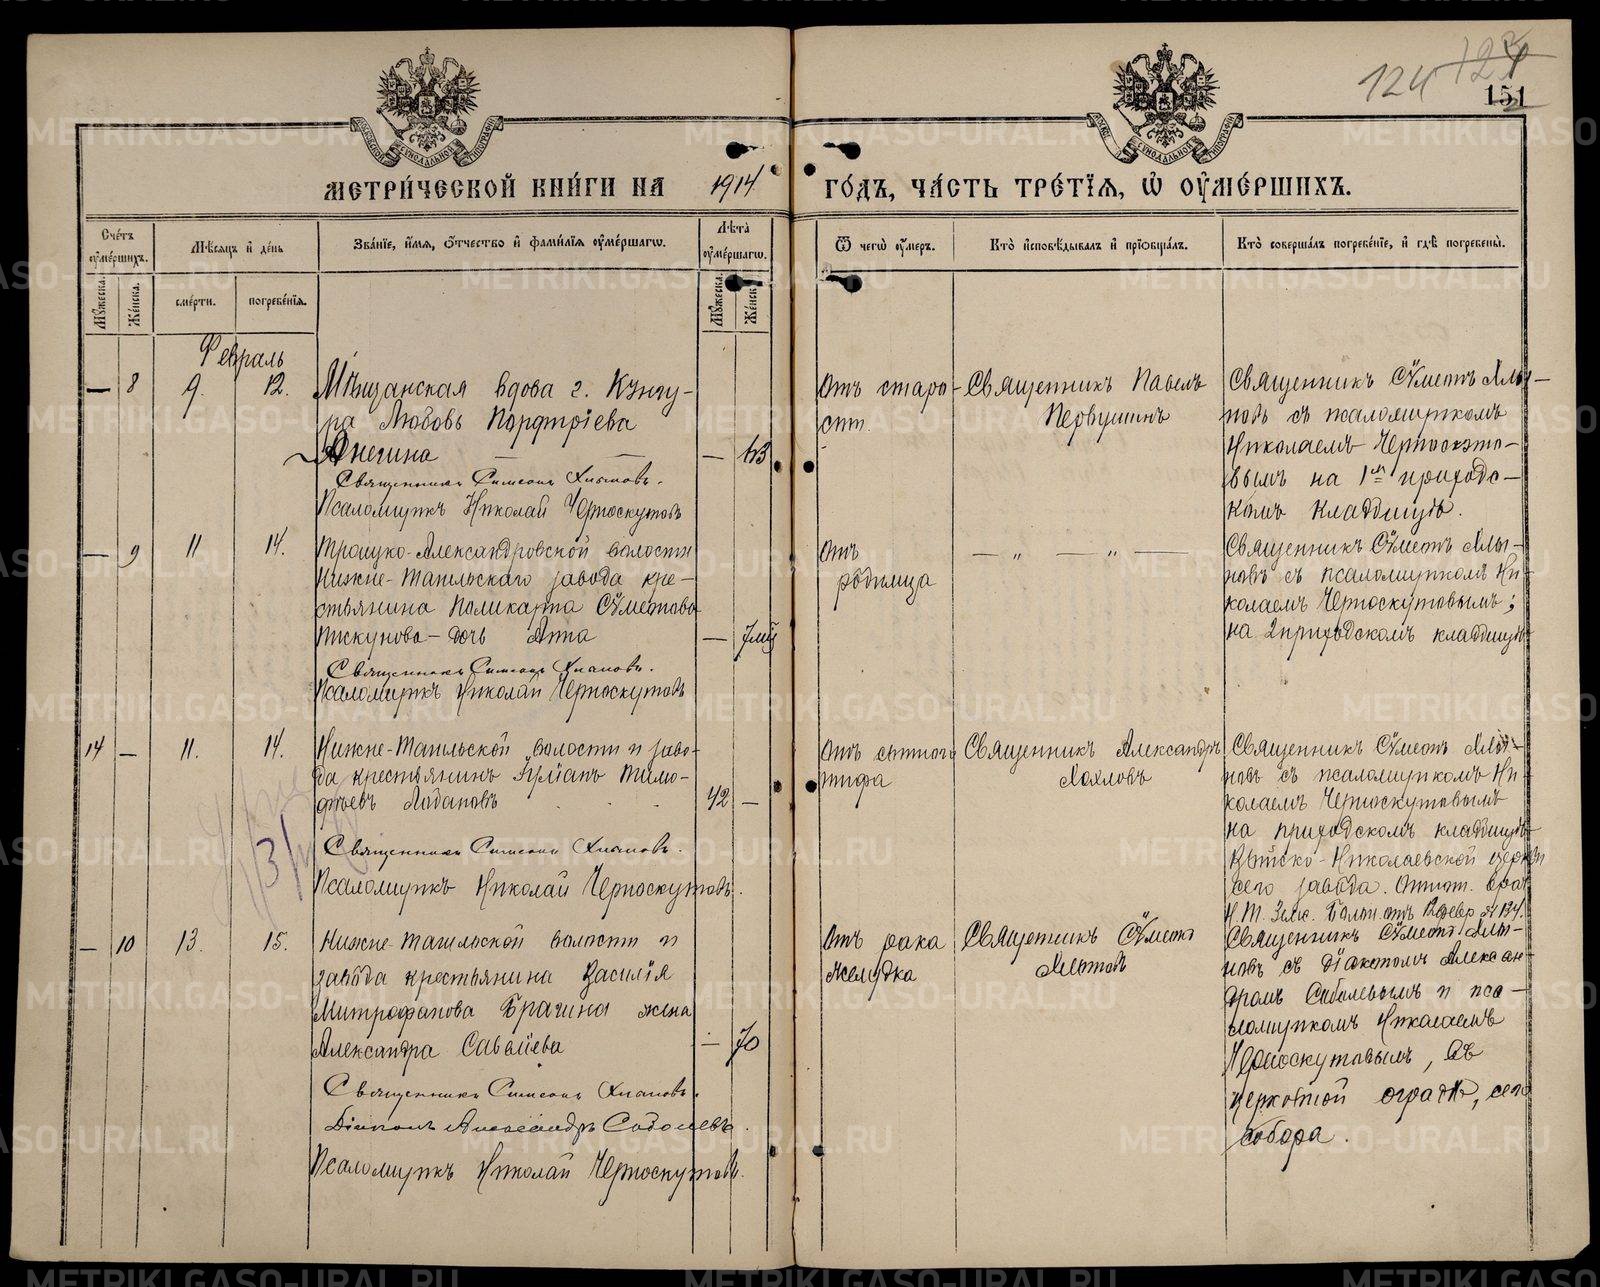 124
151
МЕТРИ́ЧЕСКОЙ КНИ́ГИ НА 1914 ГО́ДЪ, ЧА́СТЬ ТРЕ́ТІѦ, Ѡ҆ ОУ҆МЕ́РШИХЪ.
Счётъ оумéршихъ.
Мѣсяцъ и день
Званіе, имя, отчество и фамилія оумершагѡ.
Лѣта оумершагѡ.
Ѿ чегѡ оумеръ.
Кто исповѣдывалъ и пріобщалъ.
Кто совершалъ погребеніе, и гдѣ погребены.
Мужеска.
Женска.
смерти.
погребенія.
Мужеска.
Женска.
Февраль
— 8 9. 12.
Мѣщанская вдова г. Кунгу-
ра Любовь Порфиріева
Онегина — 63
Священникъ Симеонъ Хлыновъ.
Псаломщикъ Николай Черноскутовъ
Отъ старо-
сти.
Священникъ Павелъ
Первушинъ
Священникъ Сѵмеонъ Хлы-
новъ съ псаломщикомъ
Николаемъ Черноскуто-
вымъ на 1мъ приходс-
комъ кладбищѣ.
— 9 11 14.
Троицко-Александровской волости
Нижне-Тагильскаго завода кре-
стьянина Поликарпа Сѵмеонова
Пискунова — дочь Анна — 7 мц
Священникъ Симеонъ Хлыновъ.
Псаломщикъ Николай Черноскутовъ
Отъ
родимца
— „ — „ —
Священникъ Сѵмеонъ Хлы-
новъ съ псаломщикомъ Ни-
колаемъ Черноскутовымъ;
на 2 приходскомъ кладбищѣ
14 — 11. 14.
Нижне-Тагильской волости и заво-
да крестьянинъ
Тимо-
феевъ Лобановъ 42 —
Священникъ Симеонъ Хлыновъ.
Псаломщикъ Николай Черноскутовъ.
Отъ сыпного
тифа
Священникъ Александръ
Хохловъ
Священникъ Сѵмеонъ Хлы-
новъ съ псаломщикомъ Ни-
колаемъ Черноскутовымъ
на приходскомъ кладбищѣ
Выйско-Николаевской церкви
сего завода. Отнош. врач.
Н.Т. Земс. Больн. отъ 12 февр.
— 10 13. 15.
Нижне-Тагильской волости и
завода крестьянина Василія
Митрофанова Брагина жена
Александра Савв<wbr>іева — 70
Священникъ Симеонъ Хлыновъ.
Діаконъ Александръ Соболевъ.
Псаломщикъ Николай Черноскутовъ.
Отъ рака
желудка
Священникъ Сѵмеонъ
Хлыновъ
Священникъ Сѵмеонъ Хлы-
новъ съ діакономъ Алексан-
дромъ Соболевымъ и пса-
ломщикомъ Николаемъ
Черноскутовымъ, въ
церковной оградѣ, сего
собора.